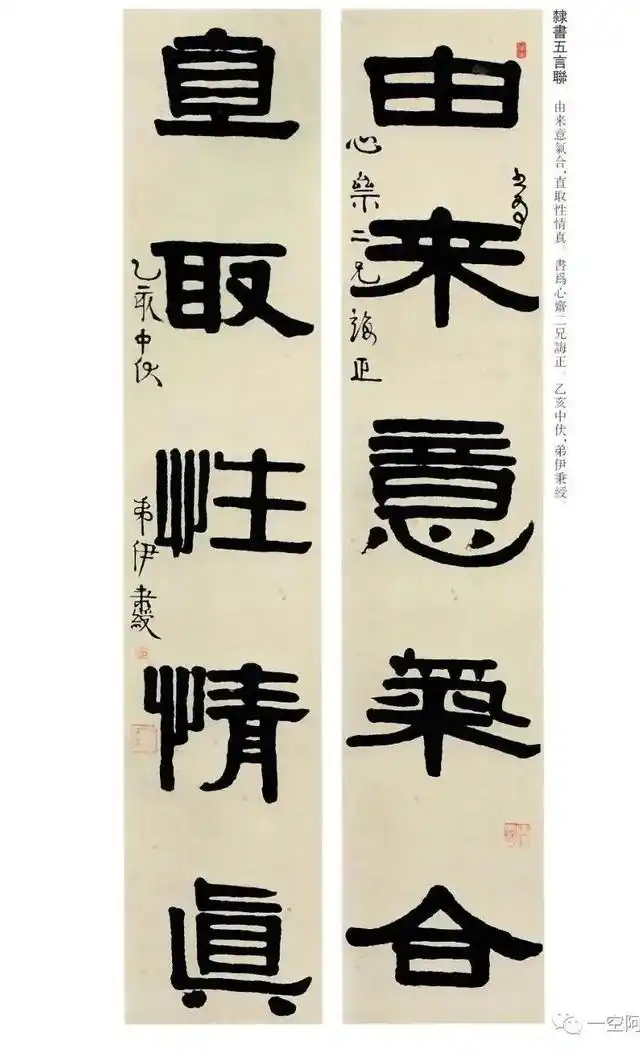 隸書五言聯
由来意氣合，直取性情真。書爲心齋二兄誨正。乙亥中伏，弟伊秉綬。
由来意氣合
書爲
心齋二兄誨正
直取性情真
乙亥中伏
弟伊秉綬
一空阿